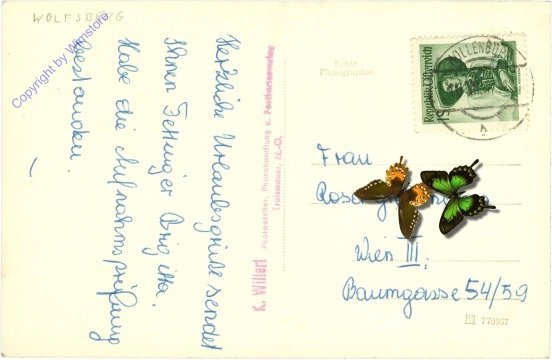 WOLFSBERG
Copyright by Wimstore
Herzliche Urlaubsgrüße sendet
Ihnen Fettinger Brigitta.
Habe die Aufnahmsprüfung
bestanden.
K. Willert
Photoatelier, Photohandlung u. Postkartenverlag
Traismauer, N.-Ö.
Echte
Photographie
Republik Österreich
Frau
Wien III.
Baumgasse 54/59
770057